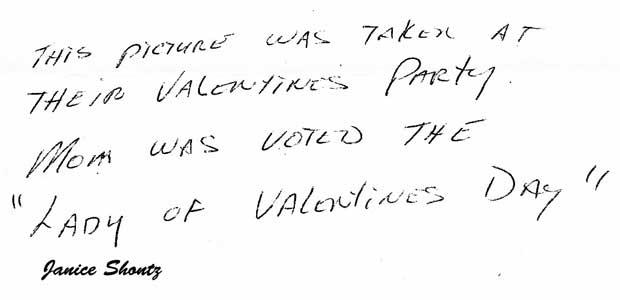 THIS PICTURE WAS TAKEN AT
THEIR VALENTINES PARTY.
MOM WAS VOTED THE
"LADY OF VALENTINES DAY"
Janice Shontz